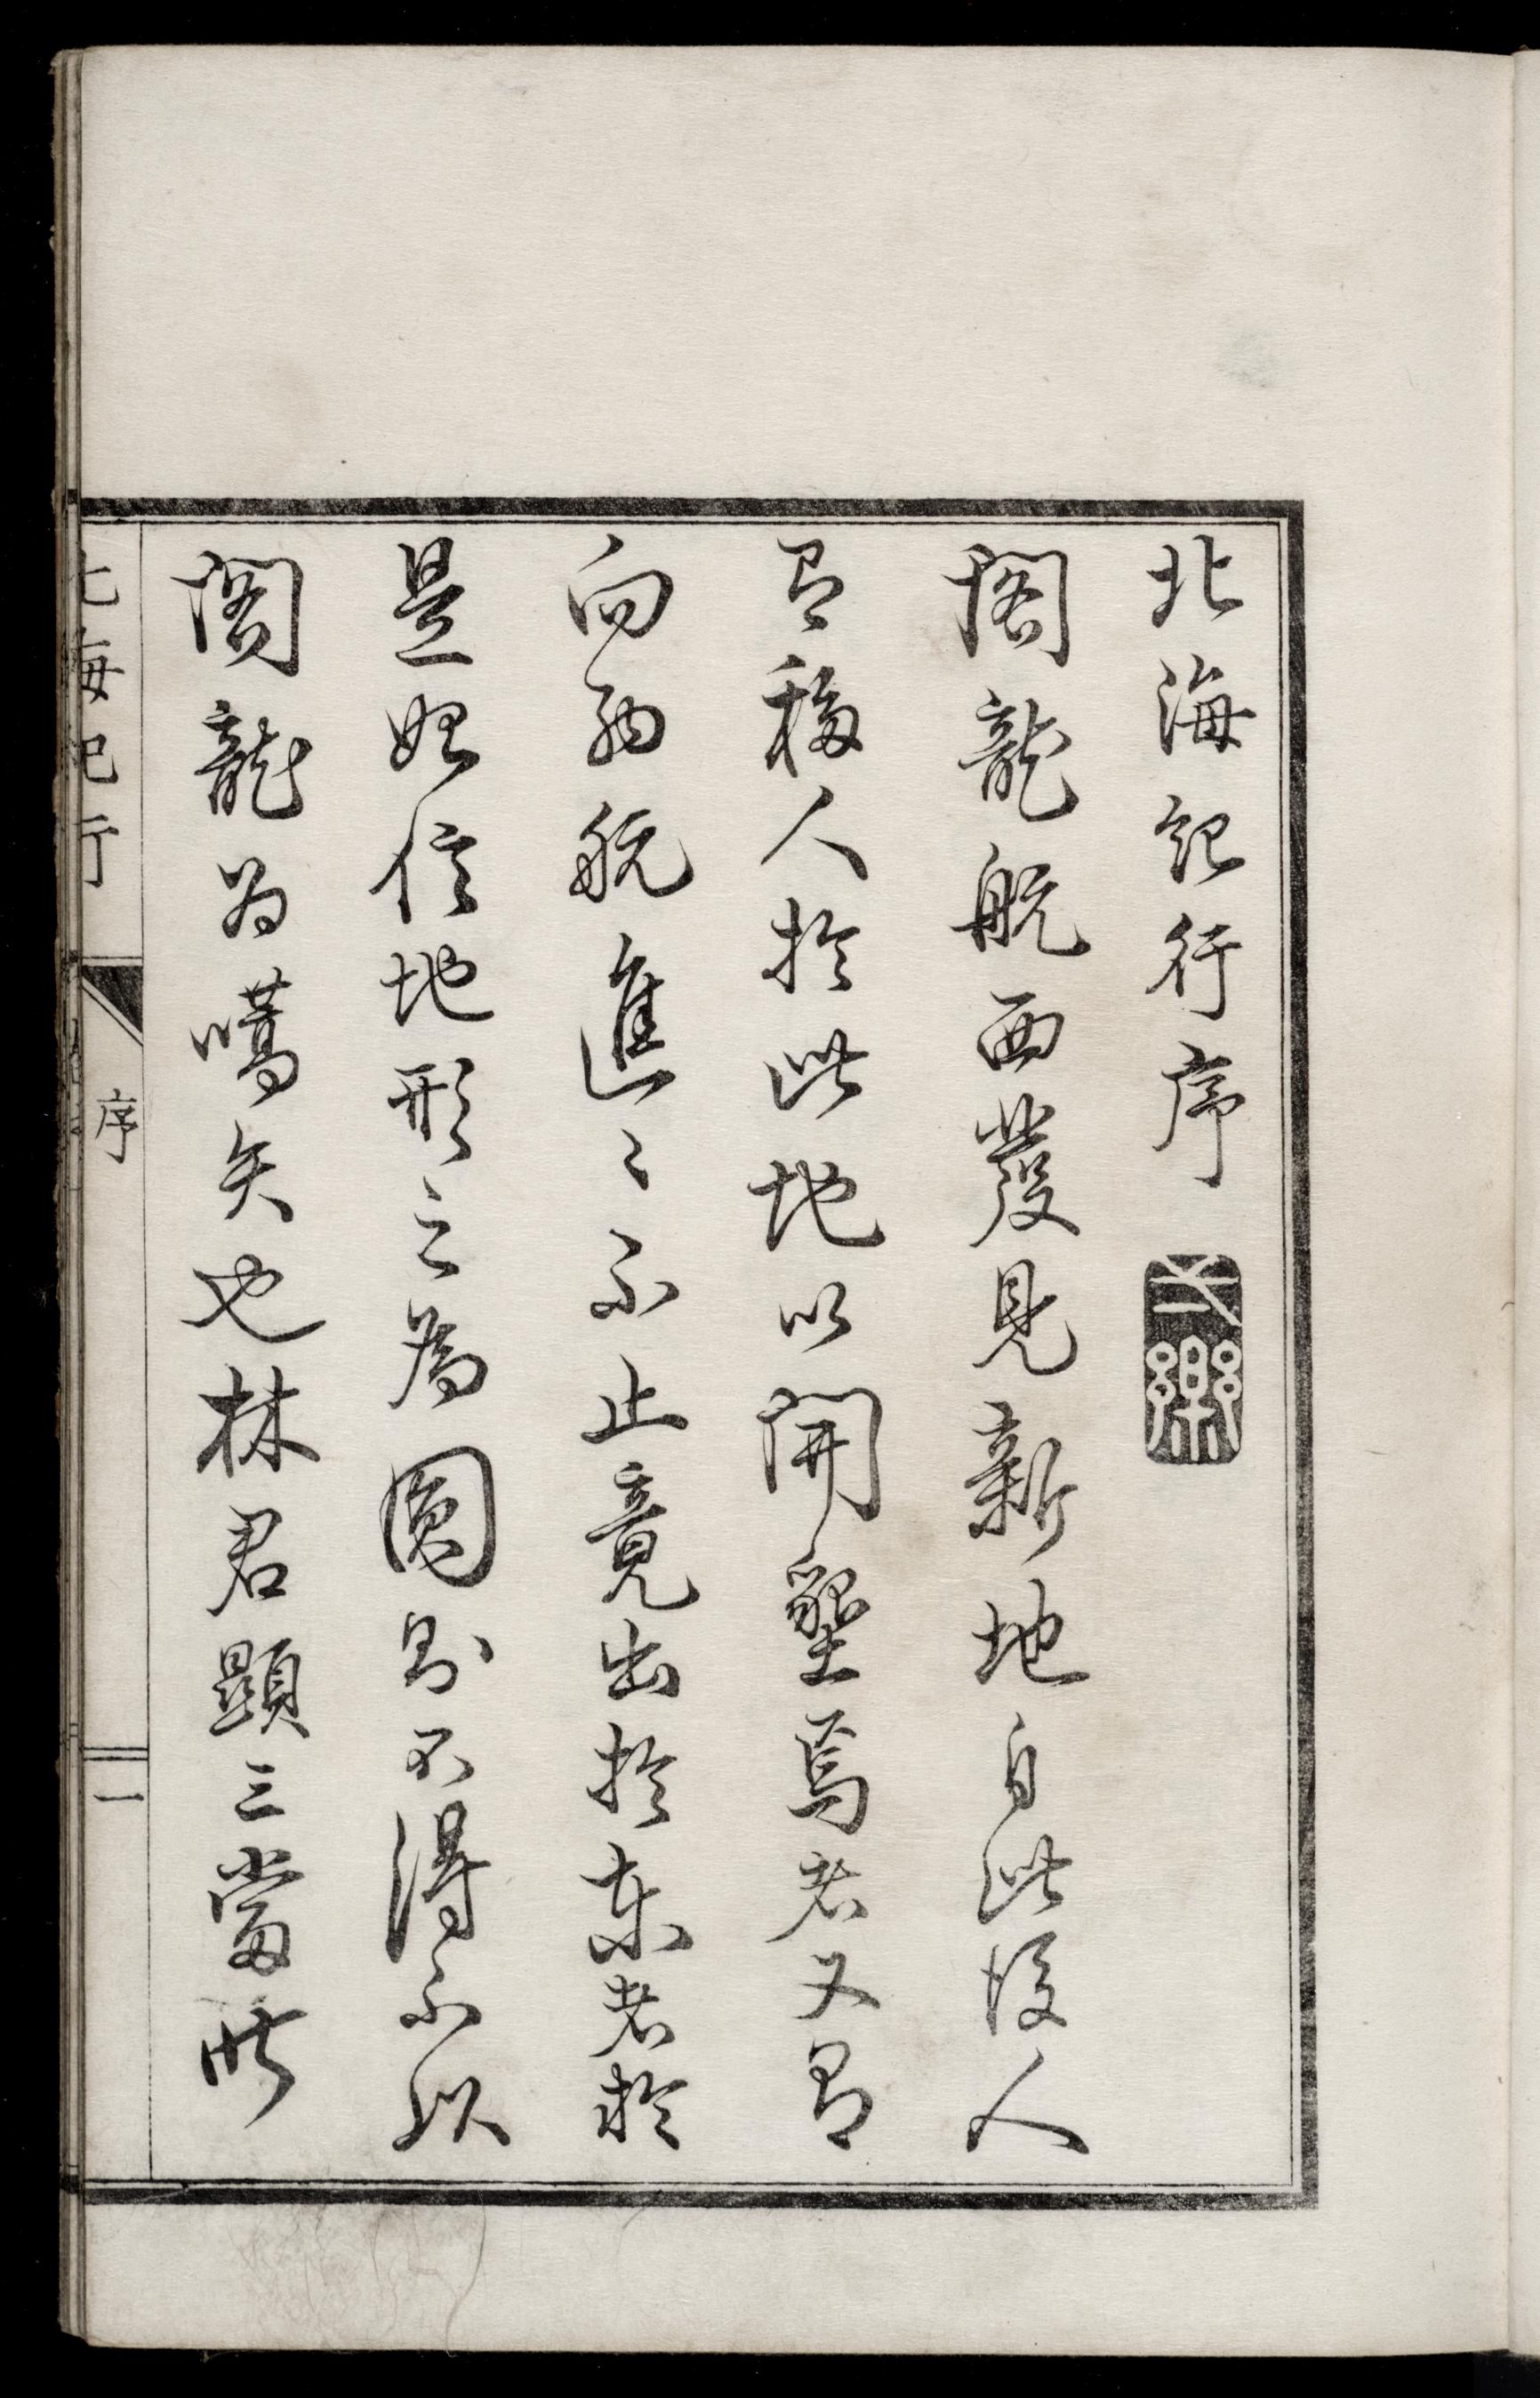 北海紀行序
閣龍航西發見新地自此後人
有移人於此地以開墾焉者又有
向西航進〻不止竟出於東者於
是始信地形之為圓則不得不以
閣龍為嚆矢也林君顯三當此
北海紀行
序
一